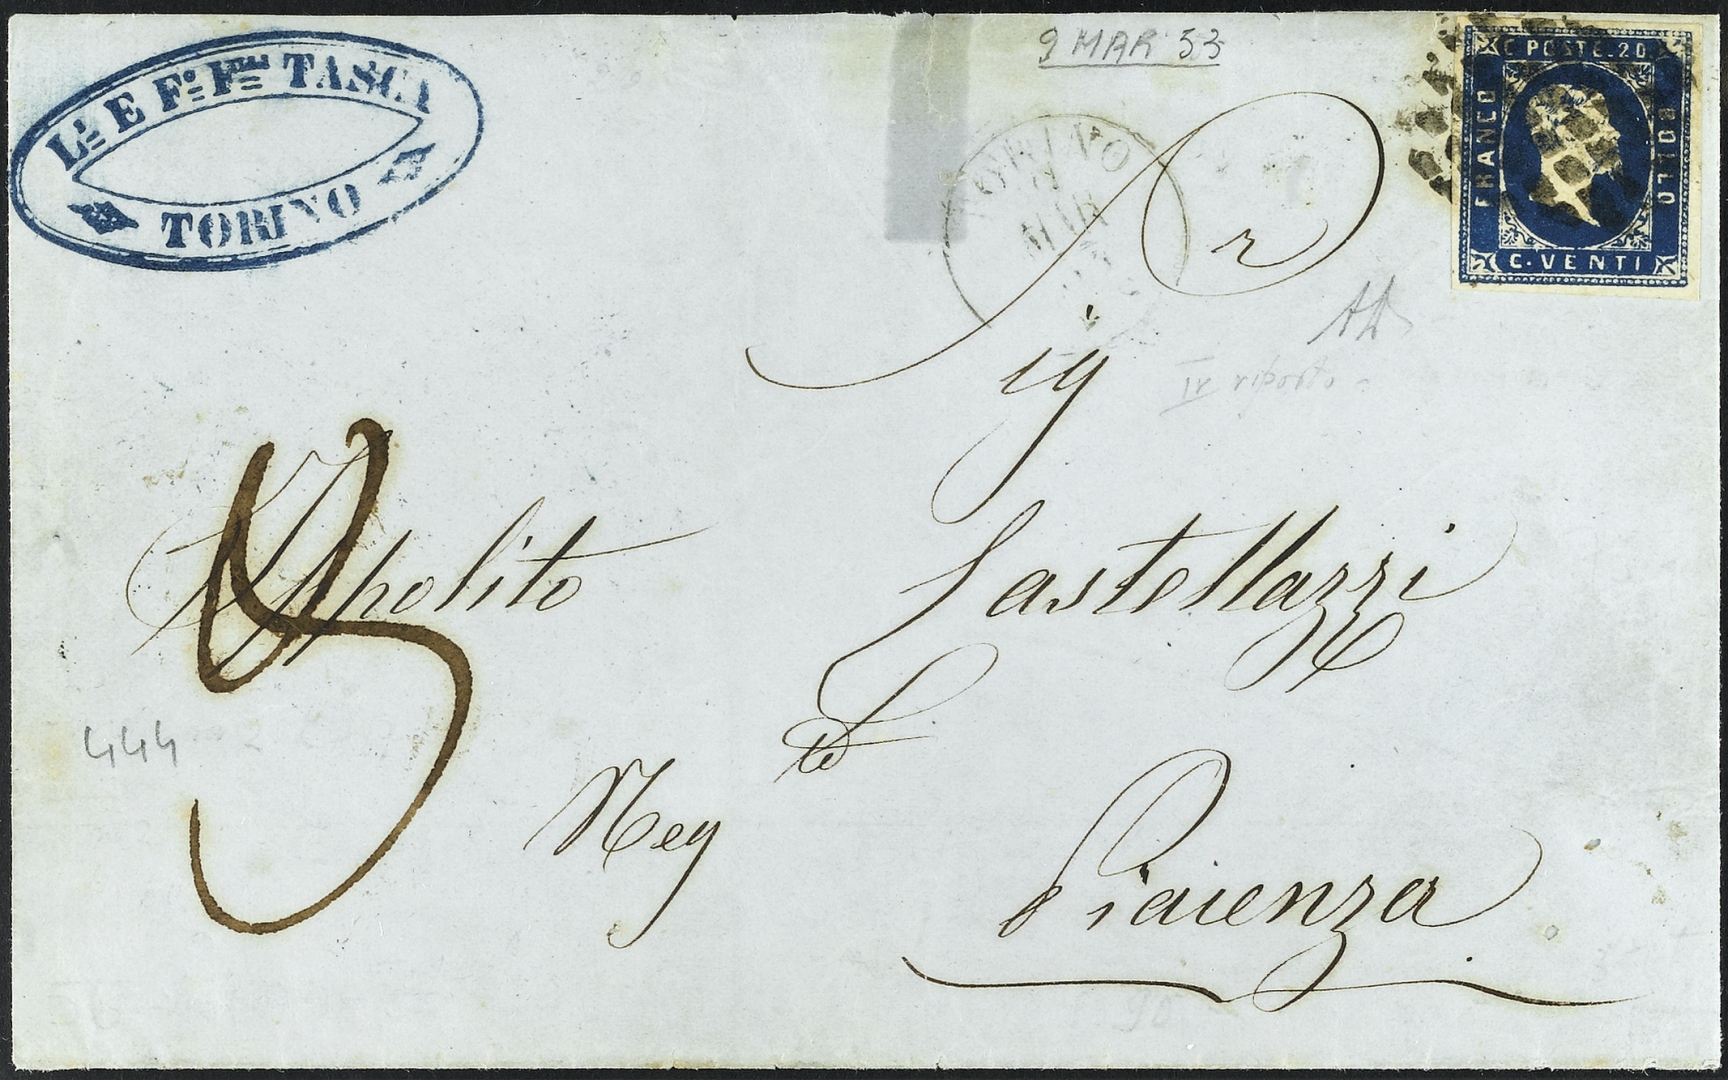 L. E F. F. TASCA
TORINO
9 MAR 53
TORINO
9
MAR
53
C. POSTE. 20
FRANCO
BOLLO
C. VENTI
Sig r
IV riporto
Ippolito Castellazzi
5
444
Neg te
Piacenza